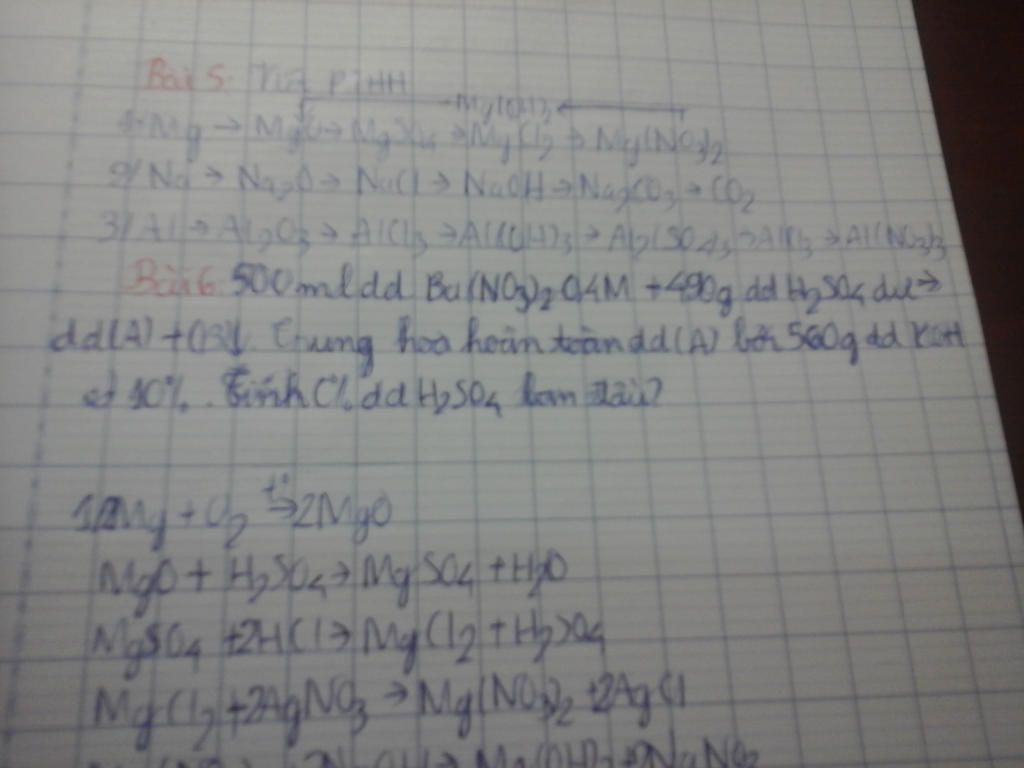 Bài 5: Viết PTHH
Mg(OH)2
1/ Mg → MgO → MgSO4 → MgCl2 → Mg(NO3)2
2/ Na → Na2O → NaCl → NaOH → Na2CO3 → CO2
3/ Al → Al2O3 → AlCl3 → Al(OH)3 → Al2(SO4)3 → AlCl3 → Al(NO3)3
Bài 6: 500ml dd Ba(NO3)2 0,4M + 490g dd H2SO4 dư →
dd(A) + (B)↓. Trung hoà hoàn toàn dd(A) bởi 560g dd KOH
10%. Tính C% dd H2SO4 ban đầu?
1/ 2Mg + O2 t°→ 2MgO
MgO + H2SO4 → MgSO4 + H2O
MgSO4 + 2HCl → MgCl2 + H2SO4
MgCl2 + 2AgNO3 → Mg(NO3)2 + 2AgCl